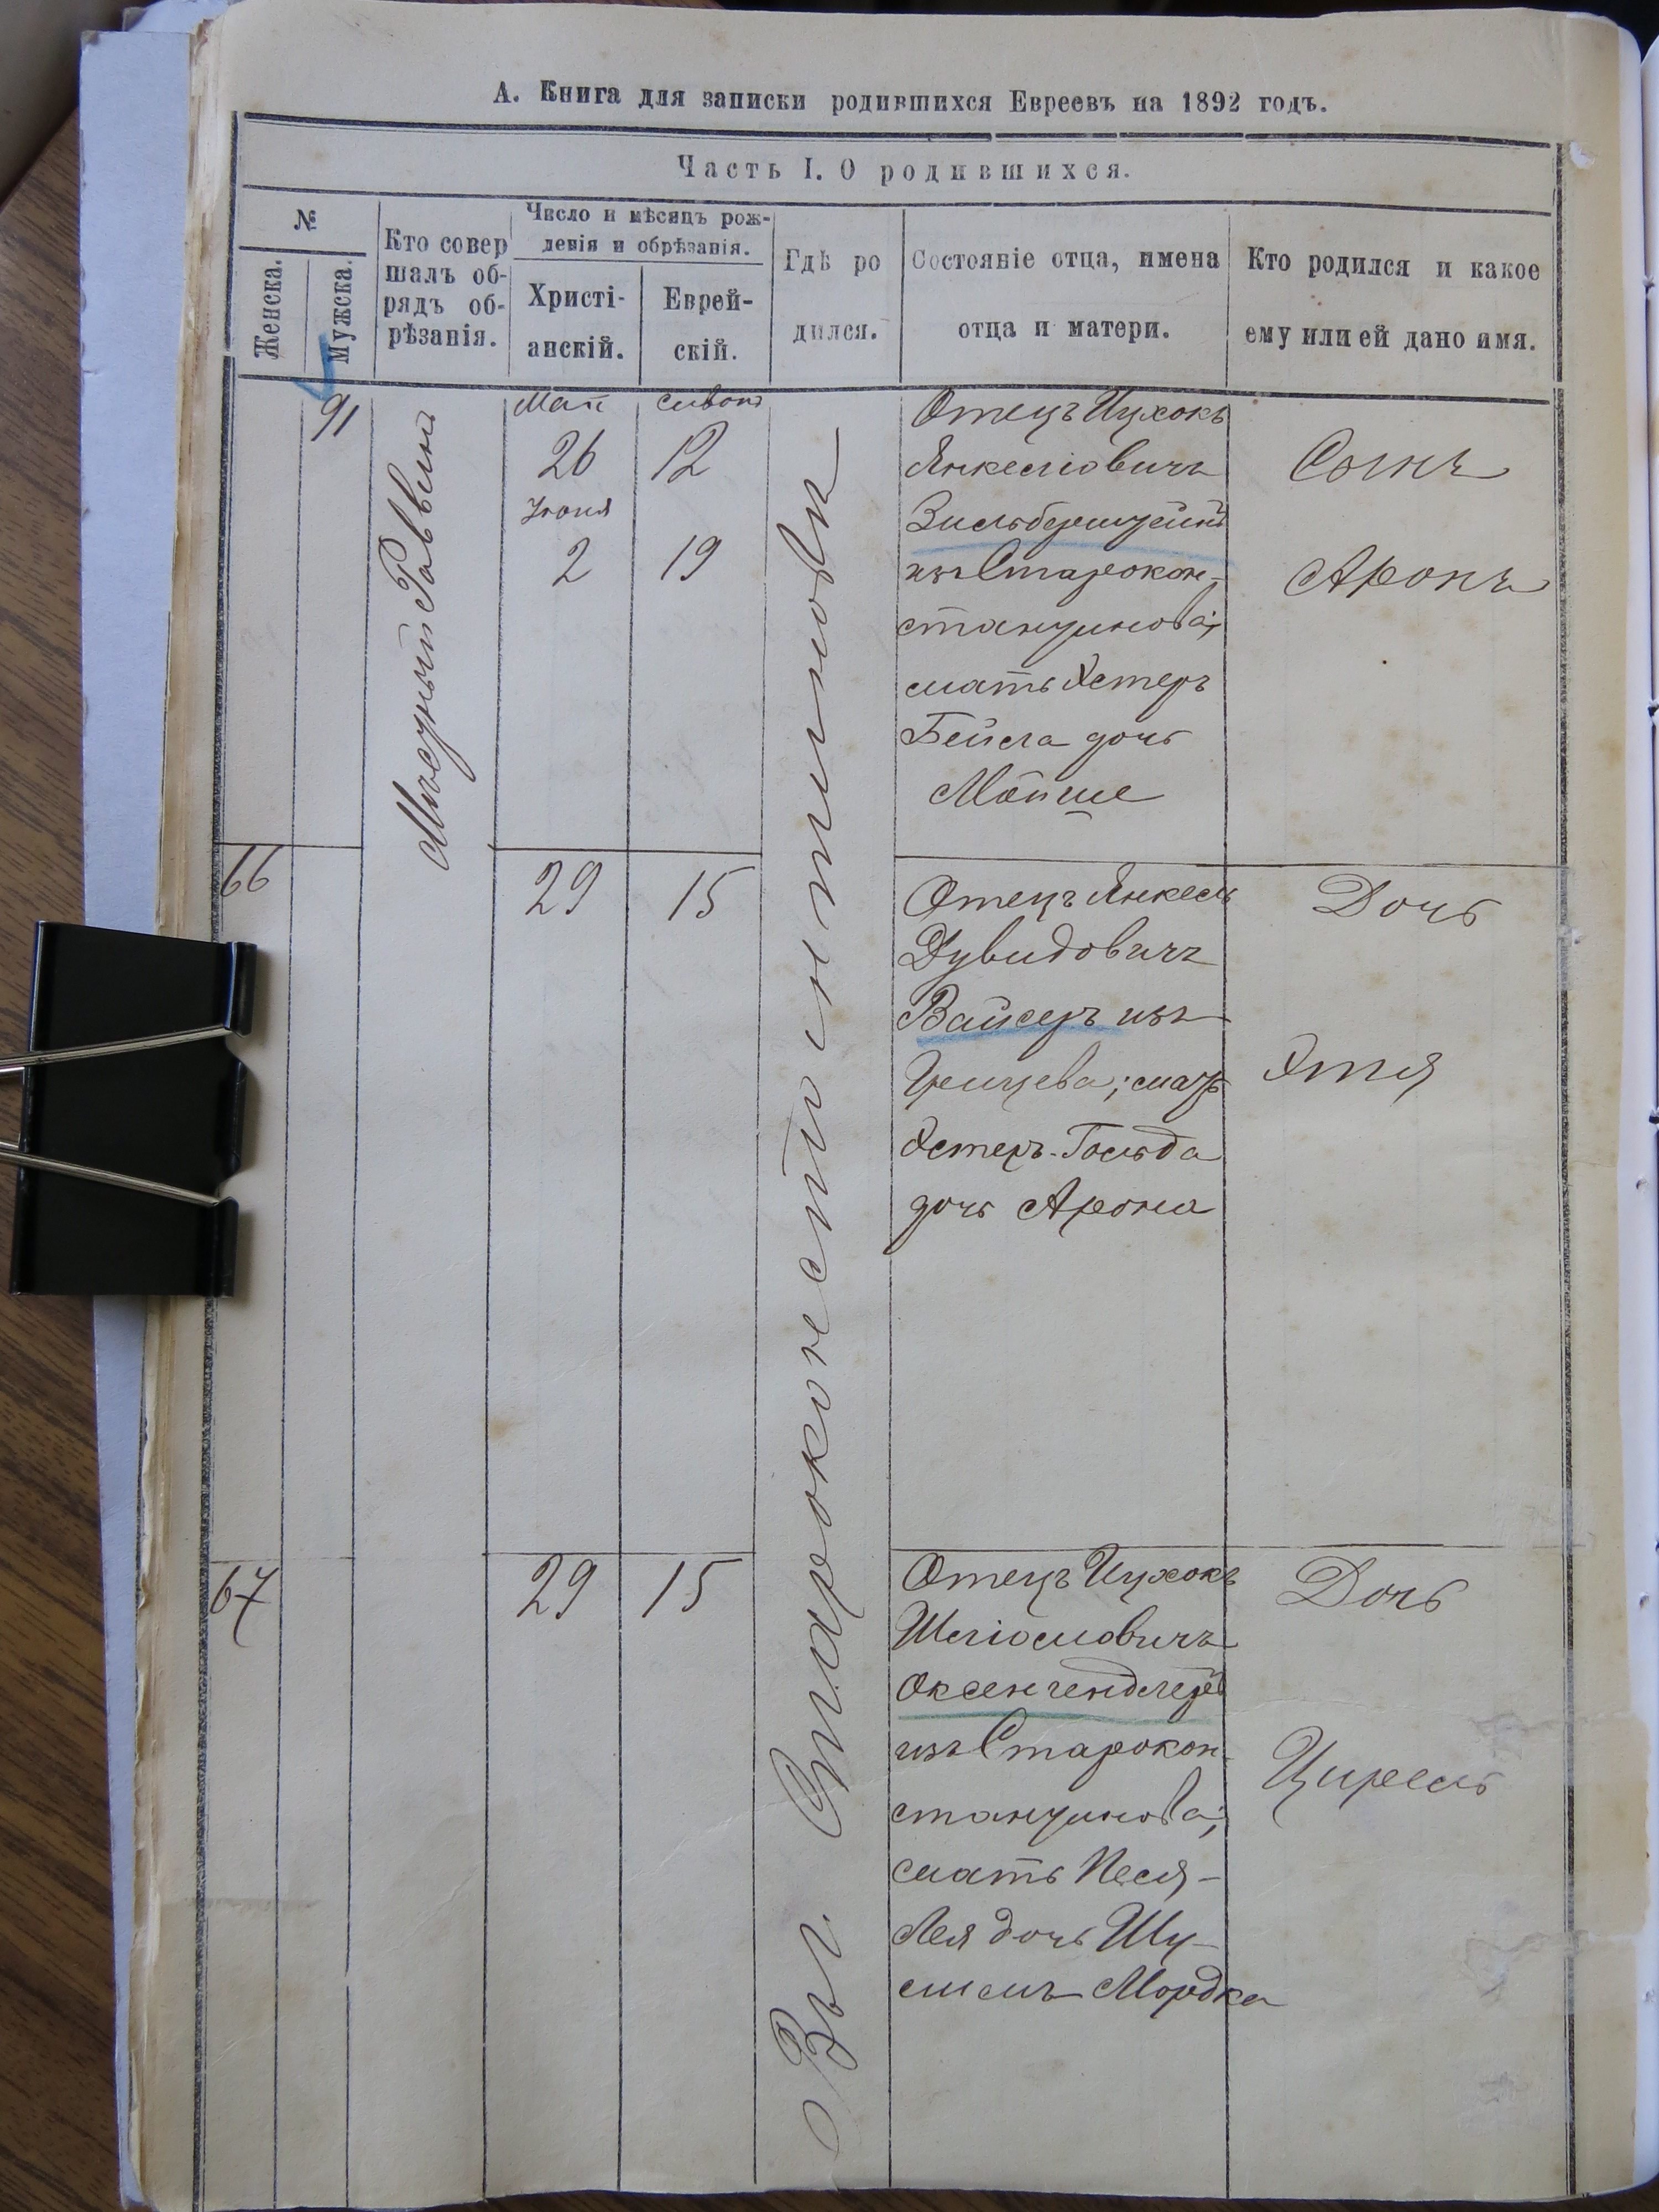 А. Книга для записки родившихся Евреевъ на 1892 годъ.
Часть I. О родившихся.
№
Женска.
Мужска.
Кто совер
шалъ об-
рядъ об-
рѣзанія.
Число и мѣсяцъ рож-
денія и обрѣзанія.
Христі-
анскій.
Еврей-
скій.
Гдѣ ро
дился.
Состояніе отца, имена
отца и матери.
Кто родился и какое
ему или ей дано имя.
91
Мѣстный Раввинъ
Май
26
Іюня
2
сивонъ
12
19
Въ Староконстантиновѣ
Отецъ Ицхокъ
Янкеліовичъ
Зильберштейнъ
изъ Старокон-
стантинова;
мать Эстеръ
Бейла дочь
Мойше
Сынъ
Аронъ
66
29
15
Отецъ Янкель
Дувидовичъ
Вайсеръ изъ
Грицева; мать
Эстеръ-Гольда
дочь Арона
Дочь
Этля
67
29
15
Отецъ Ицхокъ
Шліомовичъ
Оксенгендлеръ
изъ Старокон-
стантинова;
мать Песя-
Лея дочь Шу-
лимъ Мордка
Дочь
Цирель